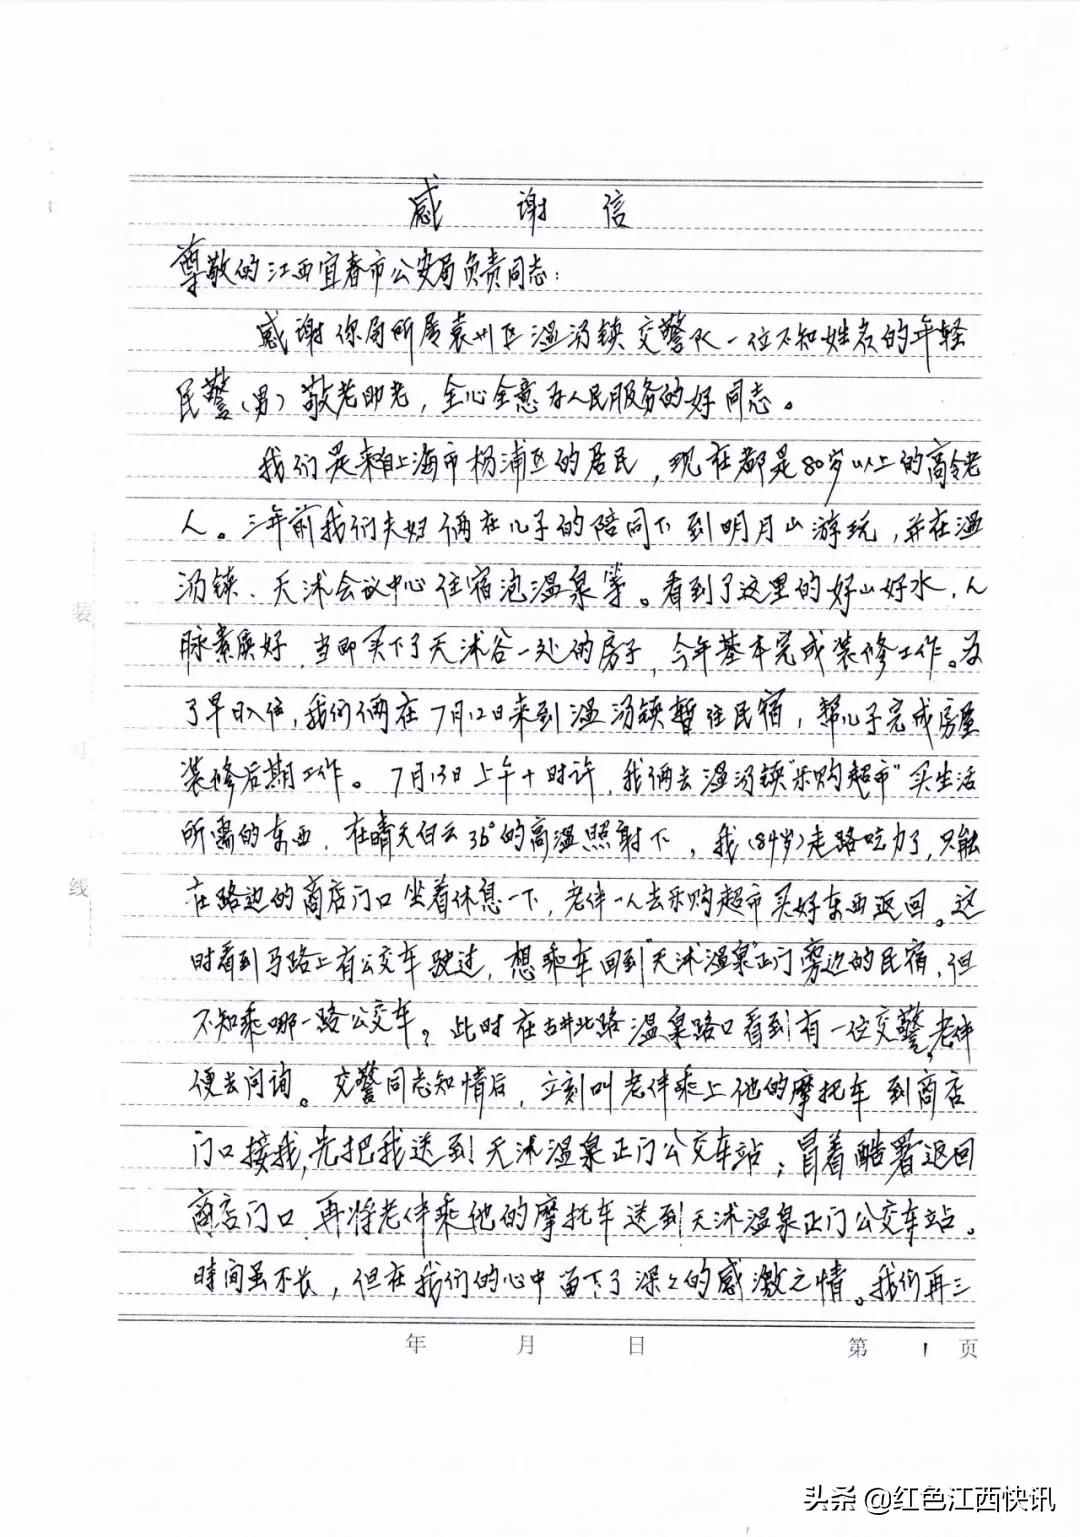 感谢信
尊敬的江西宜春市公安局负责同志：
感谢你局所属袁州区温汤镇交警队一位不知姓名的年轻
民警（男）敬老助老，全心全意为人民服务的好同志。
我们是来自上海市杨浦区的居民，现在都是80岁以上的高令老
人。三年前我们夫妇俩在儿子的陪同下到明月山游玩，并在温
汤镇、天沐会议中心住宿泡温泉等。看到了这里的好山好水，人
脉素质好，当即买下了天沐谷一处的房子，今年基本完成装修工作。为
了早日入住，我们俩在7月12日来到温汤镇暂住民宿，帮儿子完成房屋
装修后期工作。7月13日上午十时许，我俩去温汤镇“乐购超市”买生活
所需的东西，在晴天白云36°的高温照射下，我（84岁）走路吃力了，只能
在路边的商店门口坐着休息一下，老伴一人去乐购超市买好东西返回。这
时看到马路上有公交车驶过，想乘车回到“天沐温泉”正门旁边的民宿，但
不知乘哪一路公交车？此时在古井北路温泉路口看到有一位交警，老伴
便去问询。交警同志知情后，立刻叫老伴乘上他的摩托车到商店
门口接我，先把我送到天沐温泉正门公交车站；冒着酷署返回
商店门口，再将老伴乘他的摩托车送到天沐温泉正门公交车站。
时间虽不长，但在我们的心中留下了深々的感激之情。我们再三
年 月 日 第 1 页
装
订
线
头条 @红色江西快讯